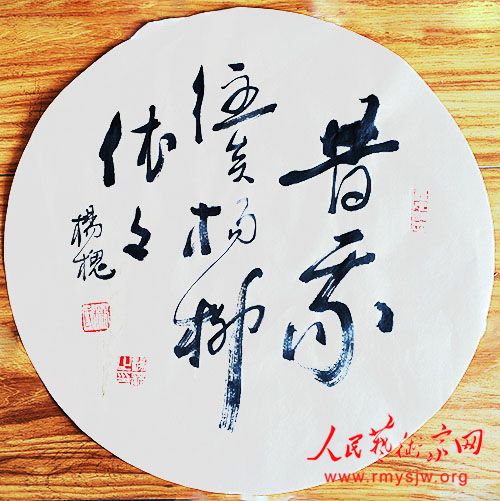 昔我
往矣杨柳
依々
楊槐
人民艺术家网
www.rmysjw.org